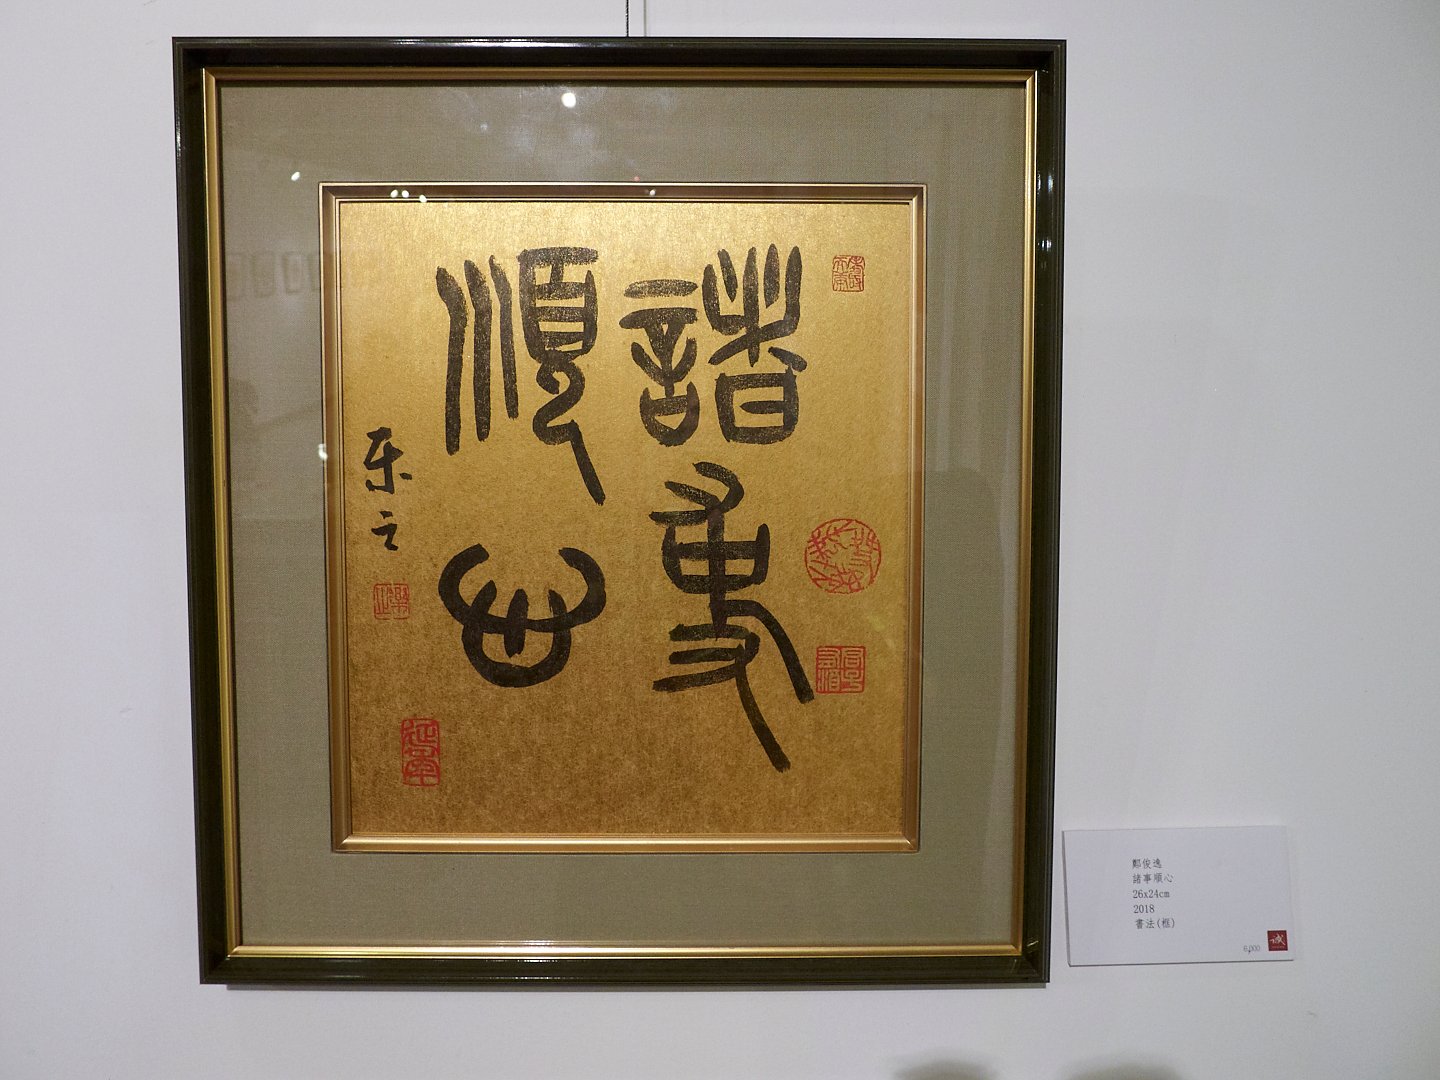 諸事
順心
樂之
鄭俊逸
諸事順心
26x24cm
2018
書法(框)
6,000
誠